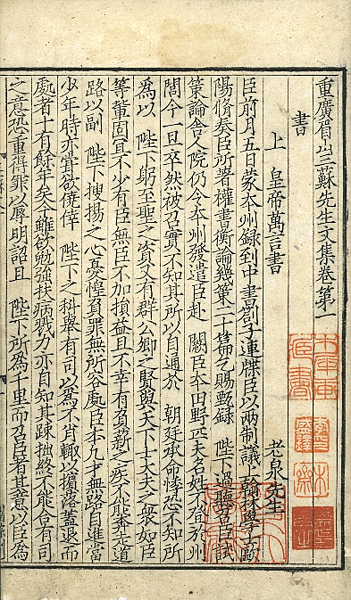 重廣眉山三蘇先生文集卷第一
書
上 皇帝萬言書 老泉先生
臣前月五日蒙本州録到中書劄子連牒臣以兩制議上翰林學士歐
陽脩奏臣所著權書衡論幾策二十篇乞賜甄録 陛下過聽召臣試
策論舍人院仍令本州發遣臣赴 闕臣本田野匹夫名姓不登於州
閭今一旦卒然被召實不知其所以自通於 朝廷承命悸恐不知所
爲以 陛下躬至聖之資又有群公卿之賢與天下士大夫之衆如臣
等輩固宜不少有臣無臣不加損益臣不幸有負薪之疾不能奔走道
路以副 陛下搜揚之心憂惶負罪無所容處臣本凡才無路自進當
少年時亦嘗欲僥倖 陛下之科舉有司以爲不肖輒以擯落蓋退而
處者十有餘年矣今雖欲勉強扶病戮力亦自知其踈拙終不能合有司
之意恐重得罪以辱明詔且 陛下所爲千里而召臣者其意以臣爲